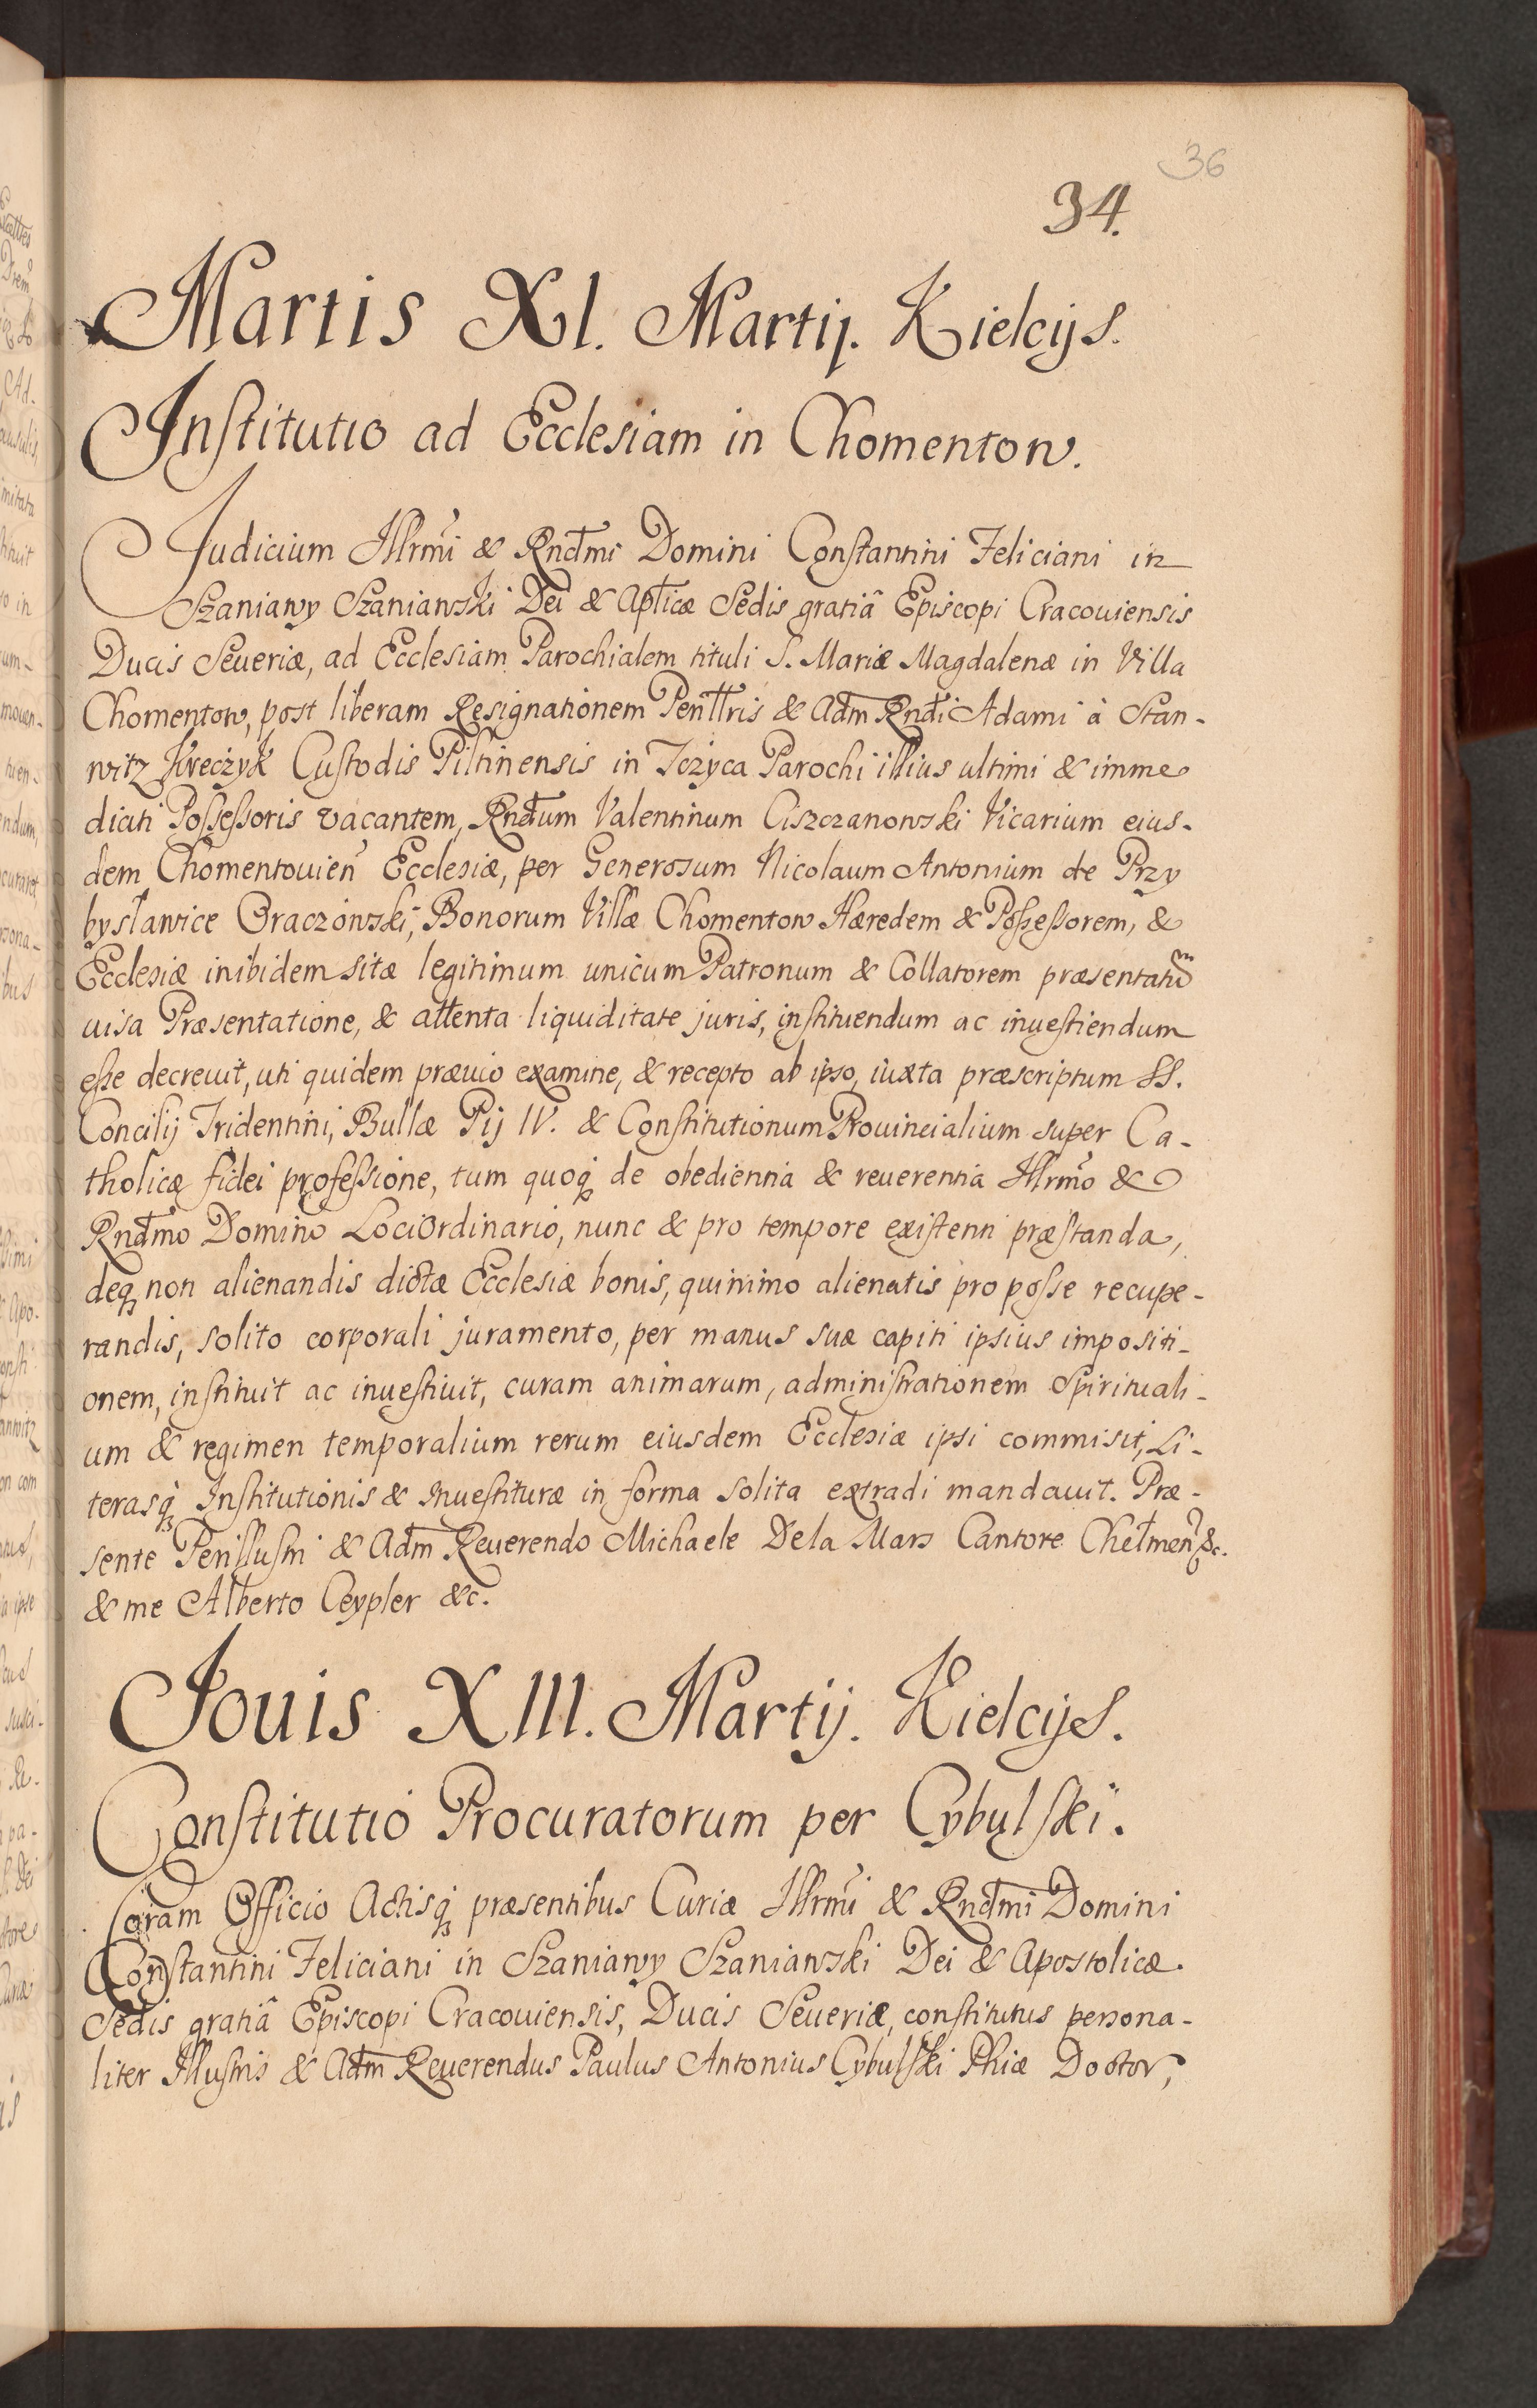 36
34.
Martis XI. Martij. Kielcijs.
Institutio ad Ecclesiam in Chomentow.
Judicium Illrmi & Rndmi Domini Constantini Feliciani in
Szaniawy Szaniawski Dei & Aplicæ Sedis gratiâ Episcopi Cracouiensis
Ducis Seueriæ, ad Ecclesiam Parochialem tituli S. Mariæ Magdalenæ in Villa
Chomentow, post liberam Resignationem Penllris & Adm Rndi Adami à Stan-
witz Kreczyk Custodis Pilsnensis in Iczyca Parochi illius ultimi & imme
diati Possessoris vacantem, Rndum Valentinum Ciszczanowski Vicarium eius-
dem Chomentouien Ecclesiæ, per Generosum Nicolaum Antonium de Przy
bysławice Oraczowski, Bonorum Villæ Chomentow Hæredem & Possessorem, &
Ecclesiæ inibidem sitæ legitimum unicum Patronum & Collatorem præsentatum
uisa Præsentatione, & attenta liquiditate juris, instituendum ac inuestiendum
esse decreuit, uti quidem præuio examine, & recepto ab ipso, iuxta præscriptum SS.
Concilij Tridentini, Bullæ Pij IV. & Constitutionum Prouincialium super Ca-
tholicæ fidei professione, tum quoq de obedientia & reuerentia Illrmo &
Rndmo Domino Loci Ordinario, nunc & pro tempore existenti præstanda,
deq non alienandis dictæ Ecclesiæ bonis, quinimo alienatis pro posse recupe-
randis, solito corporali juramento, per manus suæ capiti ipsius impositi-
onem, instituit ac inuestiuit, curam animarum, administrationem Spirituali-
um & regimen temporalium rerum eiusdem Ecclesiæ ipsi commisit, Li-
terasq Institutionis & Inuestituræ in forma solita extradi mandauit. Præ-
sente Perillustri & Adm Reuerendo Michaele Dela Mars Cantore Chełmen &c.
& me Alberto Ceypler &c.
Jouis XIII. Martij. Kielcijs.
Constitutio Procuratorum per Cybulski.
Coram Officio Actisq præsentibus Curiæ Illrmi & Rndmi Domini
Constantini Feliciani in Szaniawy Szaniawski Dei & Apostolicæ
Sedis gratiâ Episcopi Cracouiensis, Ducis Seueriæ, constitutus persona-
liter Illustris & Adm Reuerendus Paulus Antonius Cybulski Phiæ Doctor,